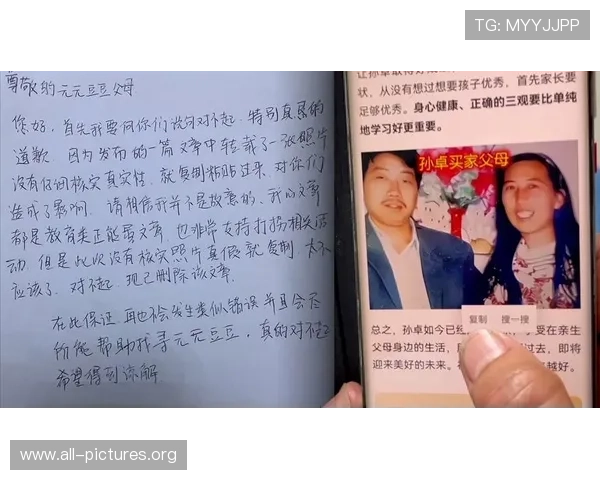 TG: MYYJJPP
尊敬的元元豆豆父母
您好，首先我要向你们说句对不起，特别真恳的
道歉，因为发布的一篇文章中转载了一张照片
没有仔细核实真实性，就复制粘贴过来，对你们
造成了影响，请相信我并不是故意的，我的文章
都是教育类正能量文章，也非常支持打拐相关活
动，但是此次没有核实照片真假就复制，太不
应该了，对不起，现已删除该文章。
在此保证，再也不会发生类似错误并且会尽
所能帮助找寻元元豆豆，真的对不起
希望得到谅解
让孙卓取得好成
状，从没有想过想要孩子优秀，首先家长要
足够优秀。身心健康、正确的三观要比单纯
地学习好更重要。
孙卓买家父母
复制 搜一搜
总之，孙卓如今已经 受在亲生
父母身边的生活， 过去，即将
迎来美好的未来。 越好。
www.all-pictures.org